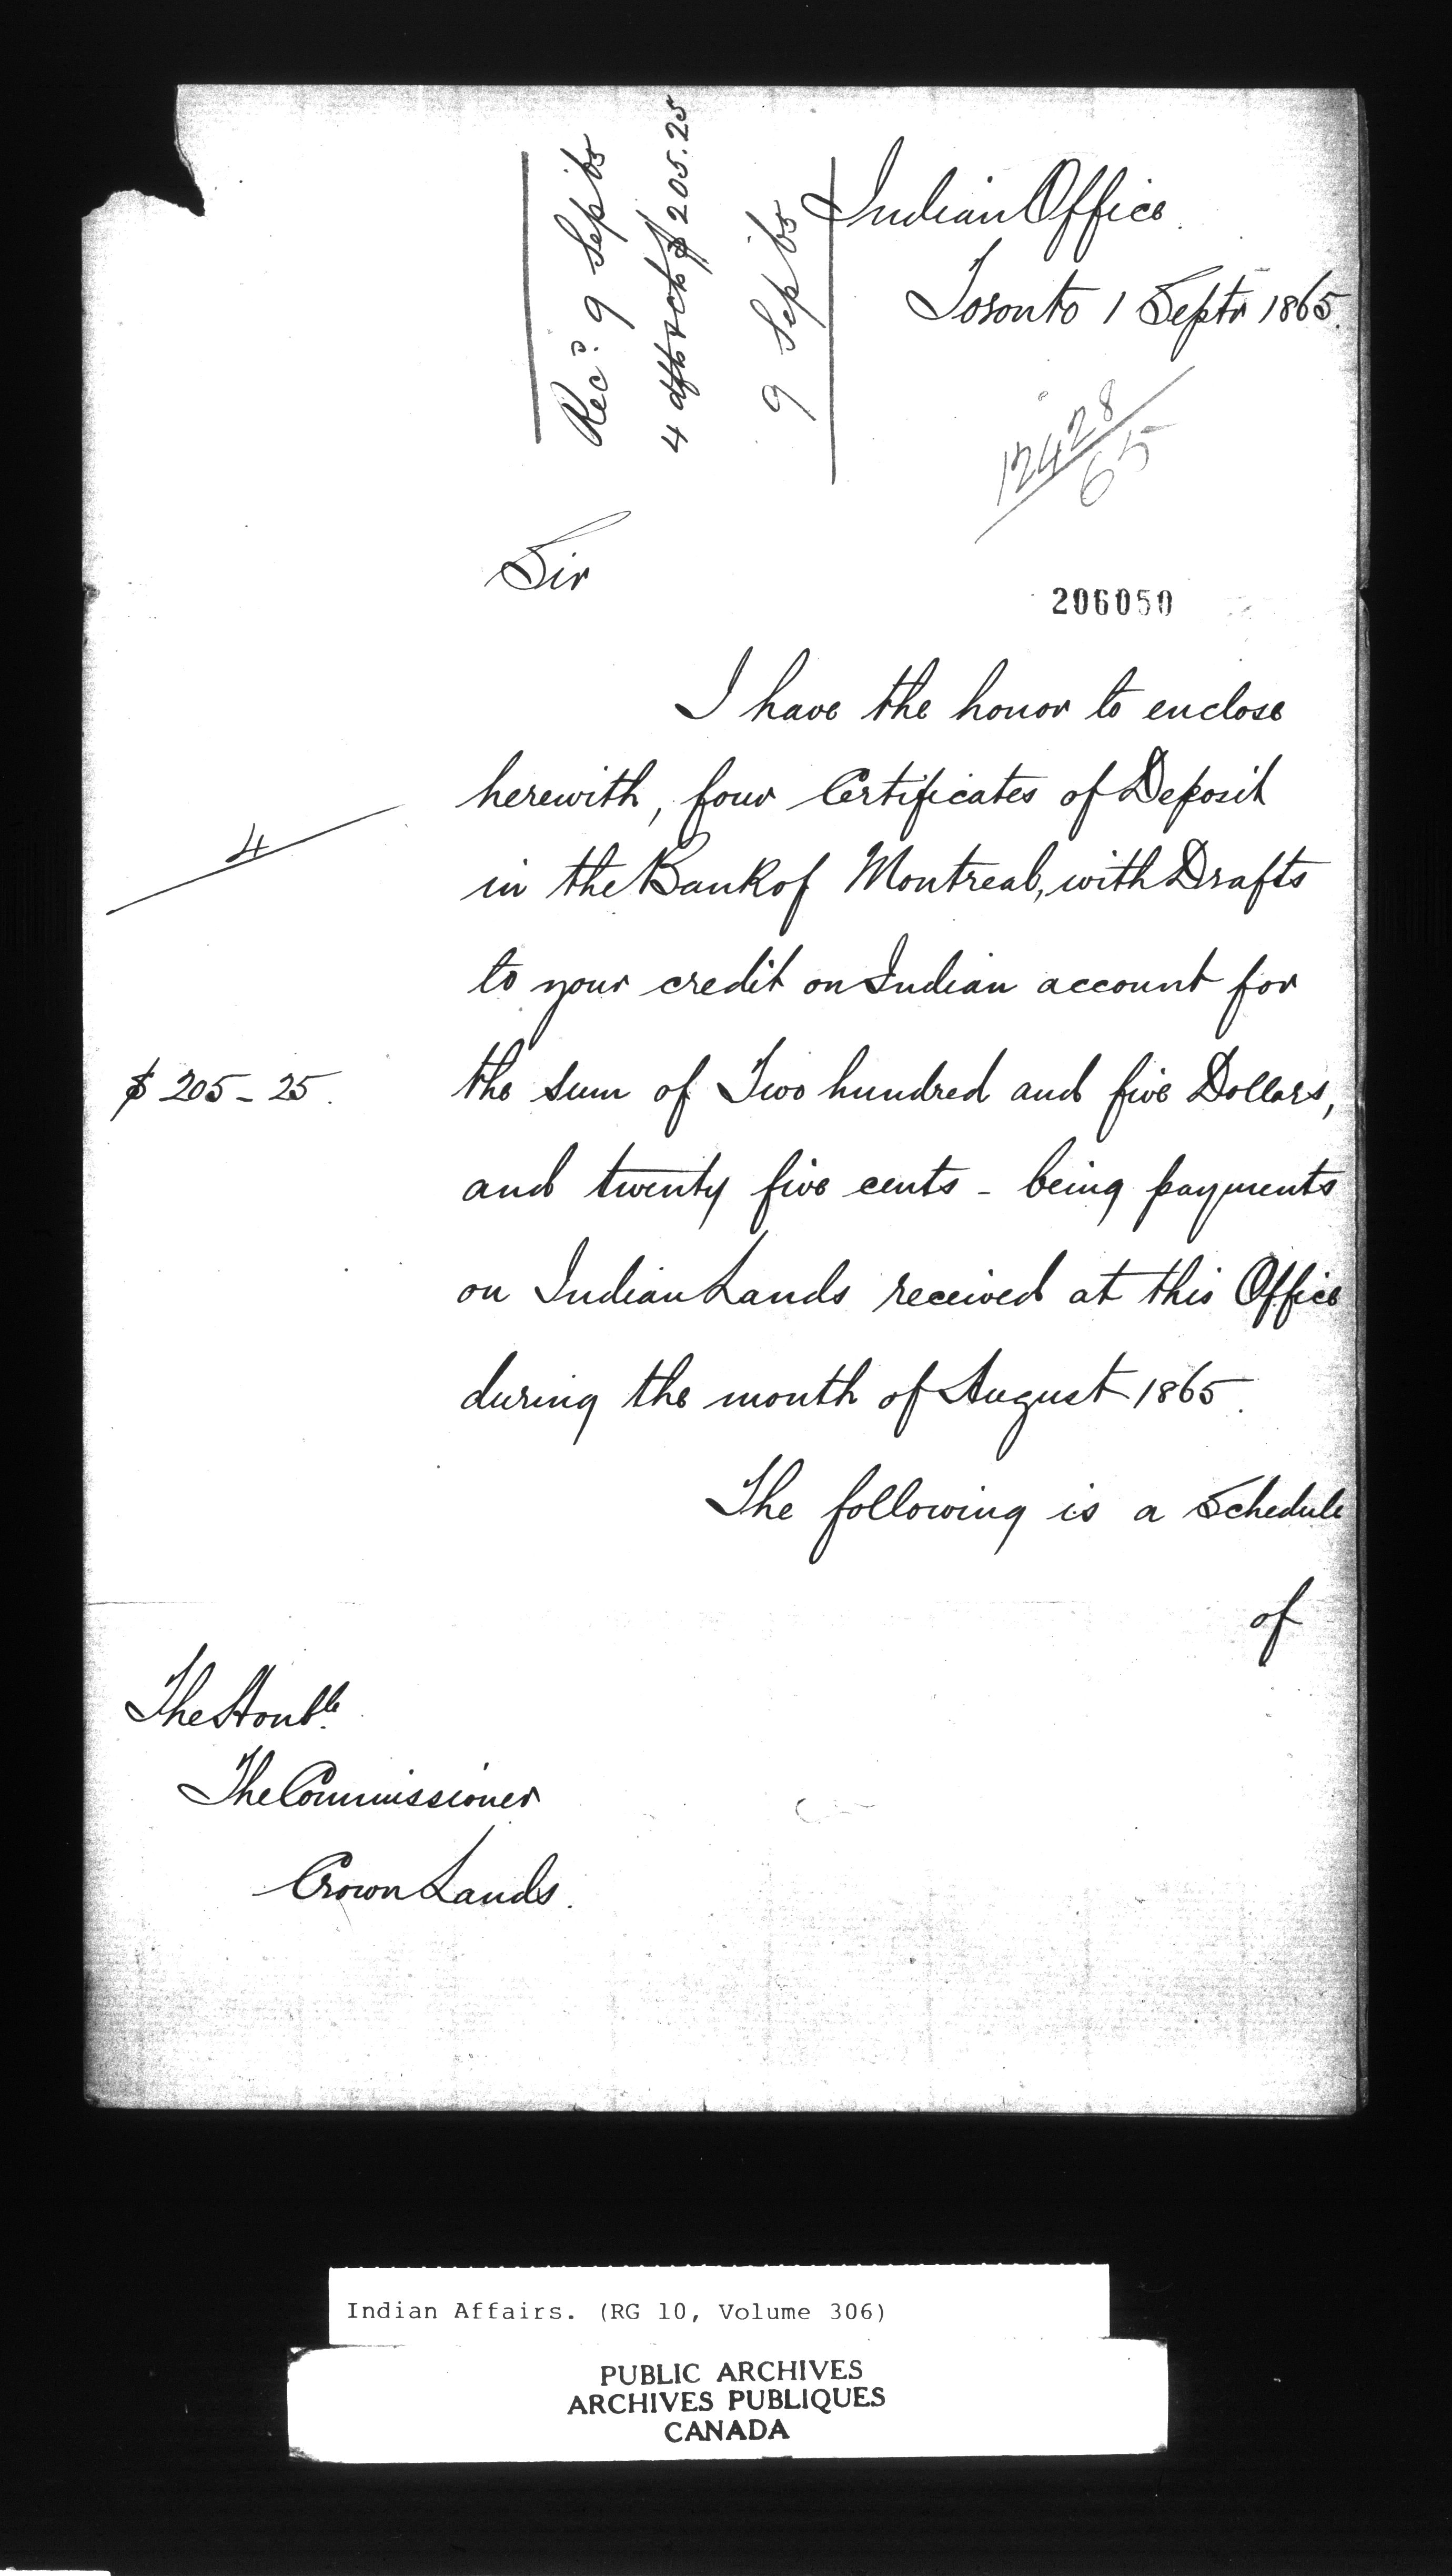 Indian Office
Toronto 1 Septr 1865.
Recd. 9 Sep '65
4 dfts & ctf $205.25
9 Sep 65
12428
65
Sir
206050
I have the honor to enclose
herewith, four Certificates of Deposit
4
in the Bank of Montreal, with Drafts
to your credit on Indian account for
$ 205 - 25.
the sum of Two hundred and five Dollars,
and twenty five cents - being payments
on Indian Lands received at this Office
during the month of August 1865.
The following is a Schedule
of
The Honble.
The Commissioner
Crown Lands.
Indian Affairs. (RG 10, Volume 306)
PUBLIC ARCHIVES
ARCHIVES PUBLIQUES
CANADA